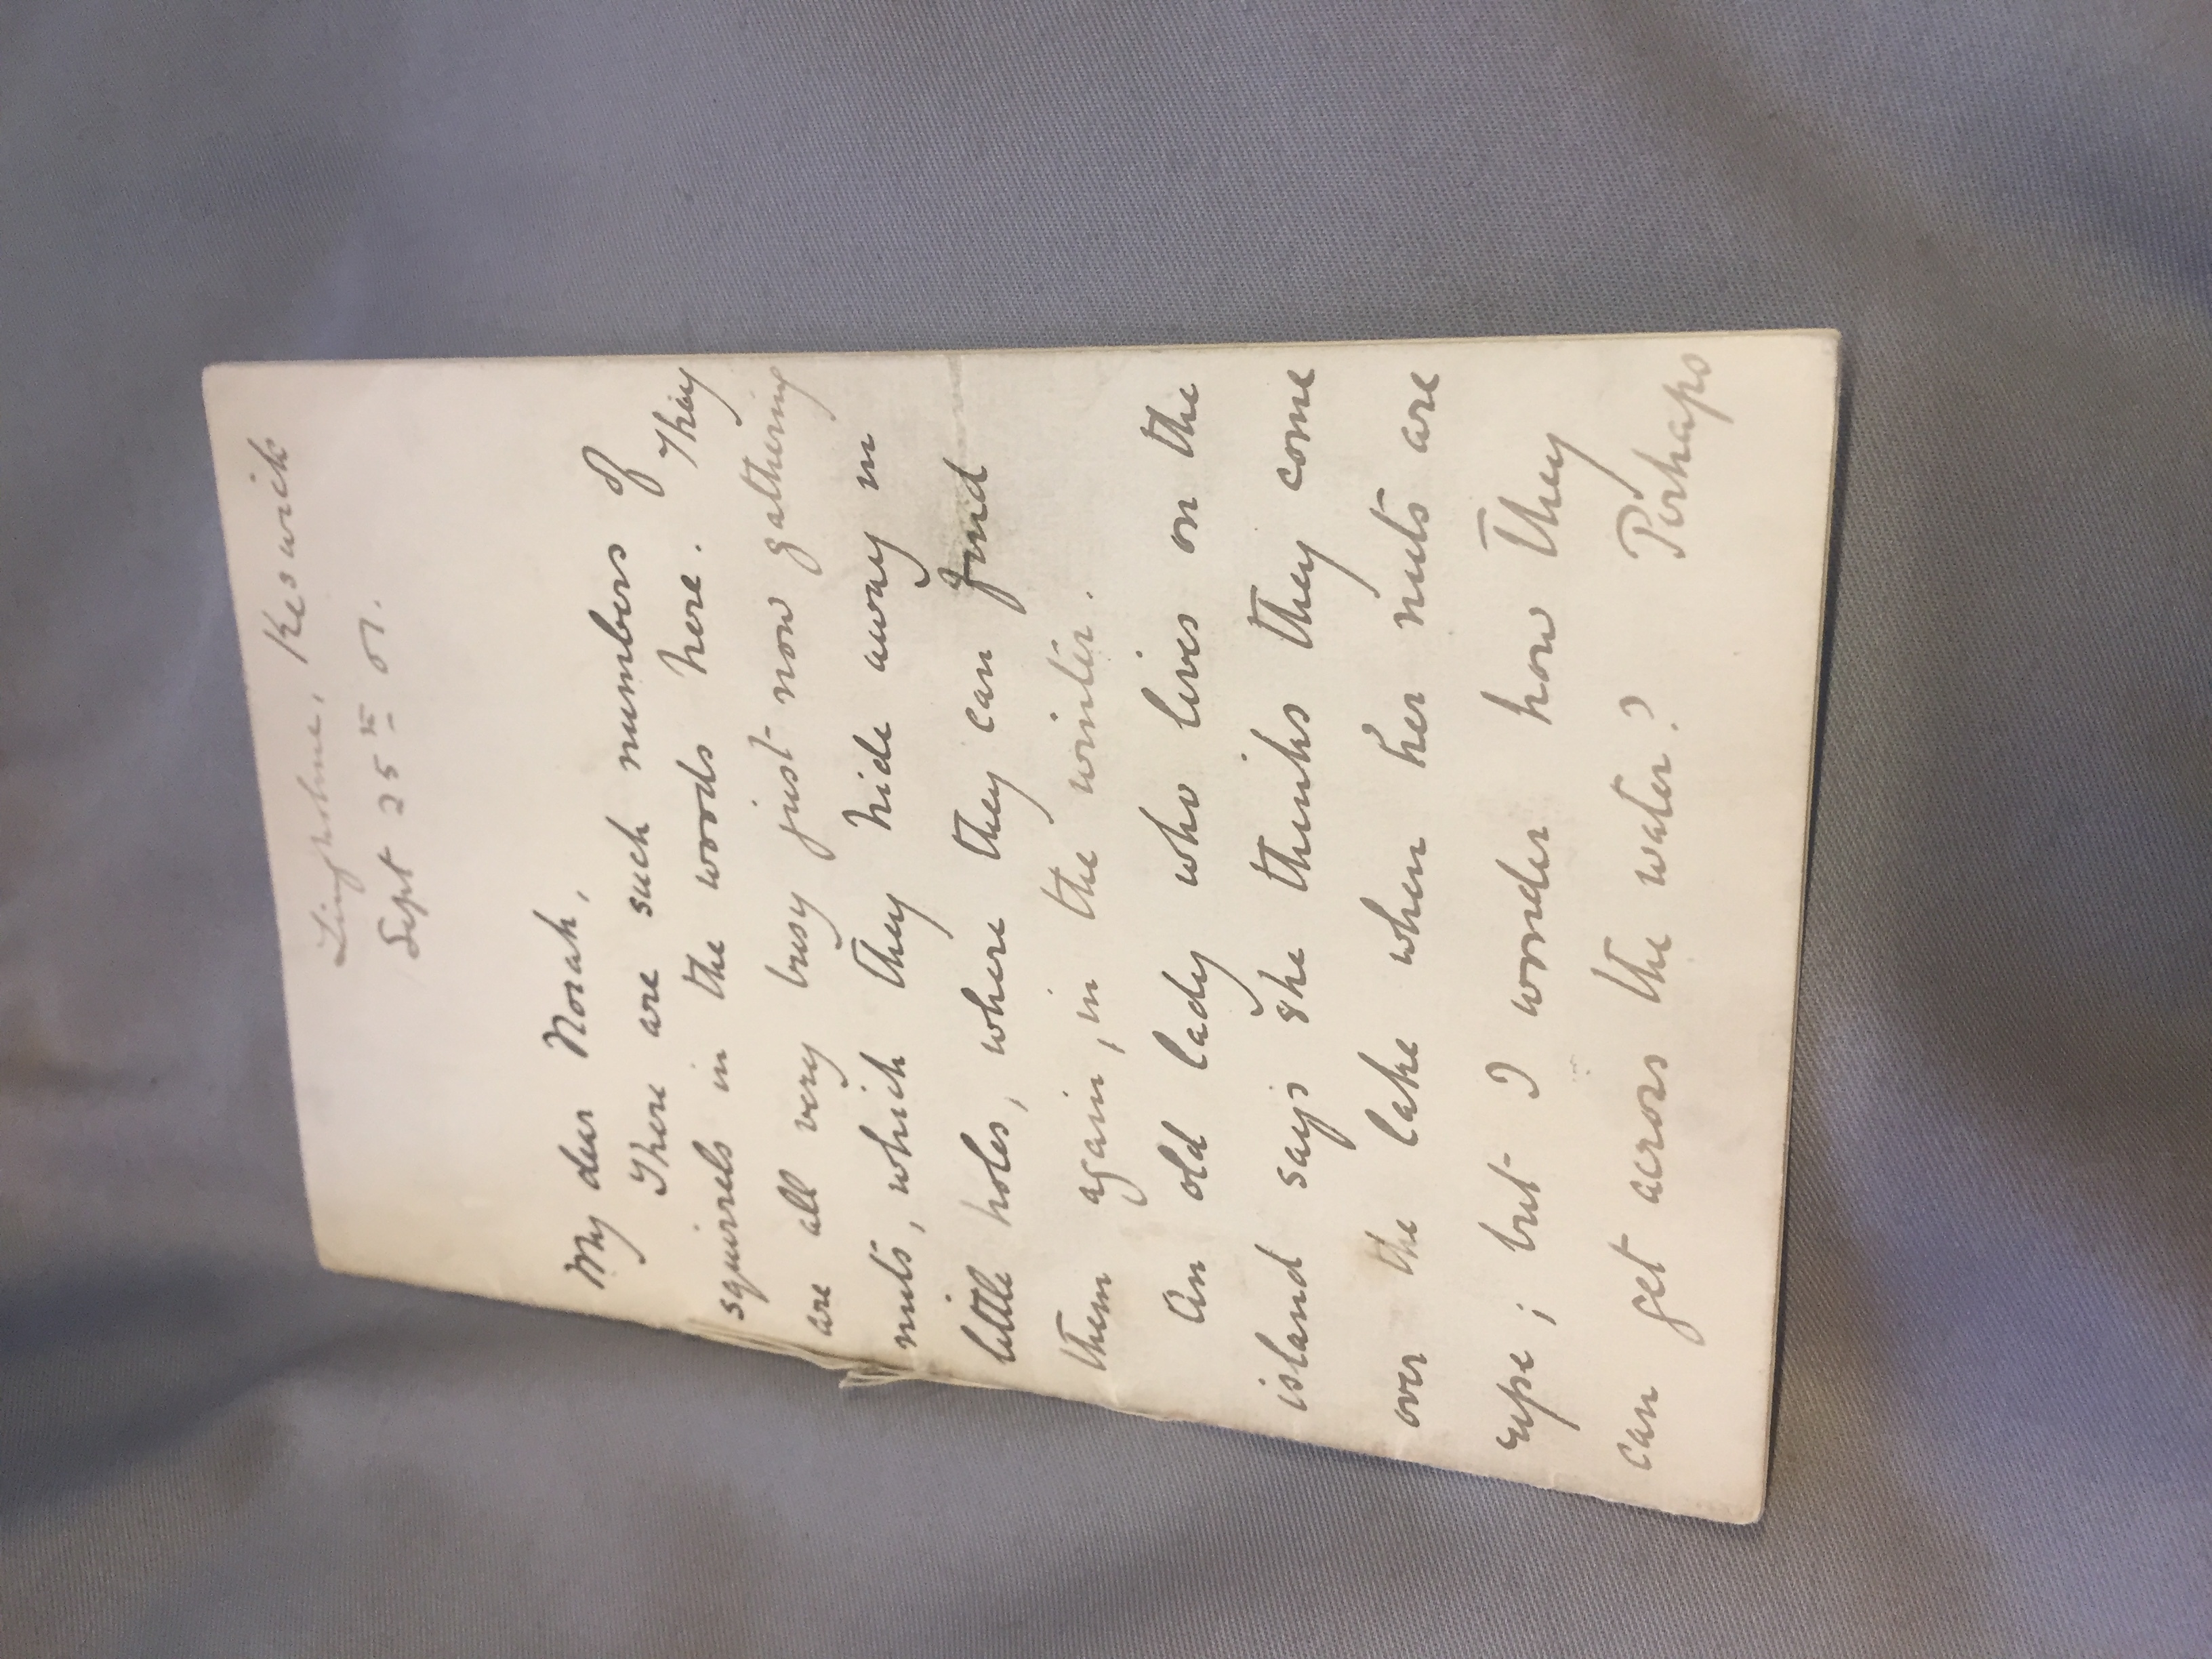 Lingholme, Keswick
Sept 25th 01.
My dear Norah,
There are such numbers of
squirrels in the woods here. They
are all very busy just now gathering
nuts, which they hide away in
little holes, where they can find
them again, in the winter.
An old lady who lives on the
island says she thinks they come
over the lake when her nuts are
ripe; but I wonder how they
can get across the water? Perhaps